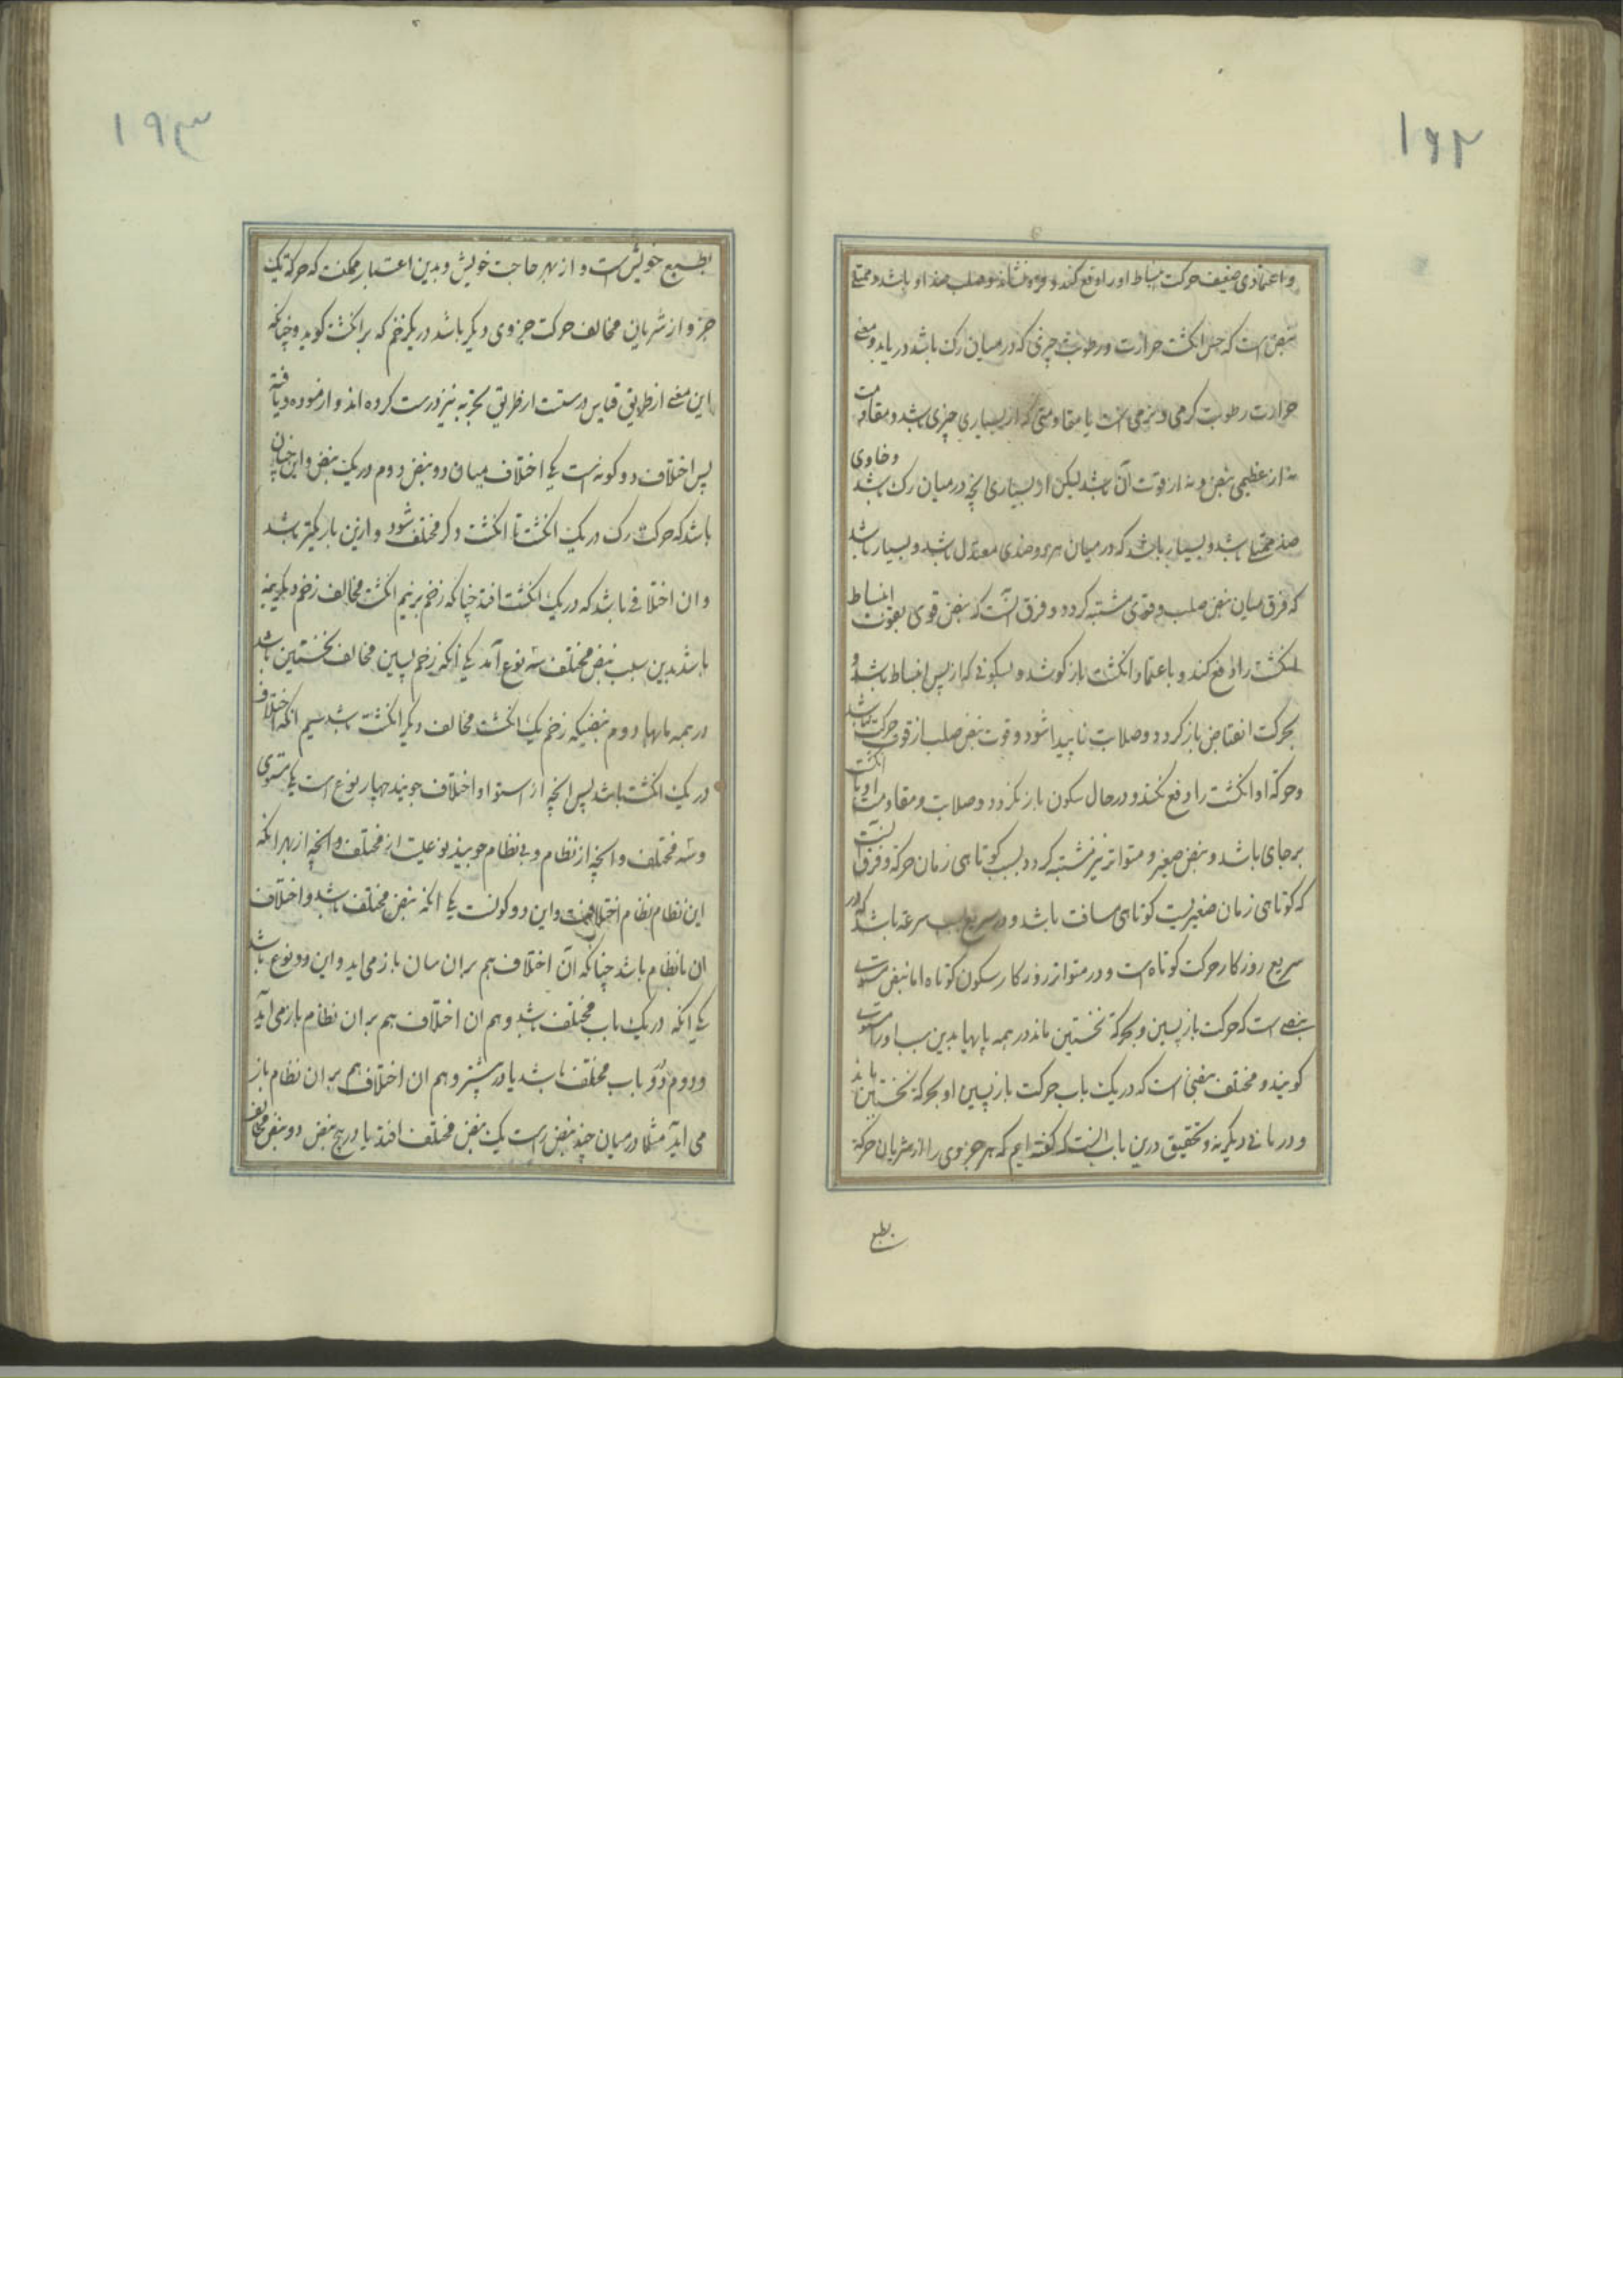 ۱۹۲
و اعتمادی ضعیف حرکت انبساط او را دفع کند و فرو نشاند و صلب ضد او باشد و ممتلی
نبض است که حس انکشت حرارت و رطوبت چیزی که در میان رک باشد دریابد و معنی
حرارت رطوبت کرمی و نرمی است یا مقاومتی که از بسیاری چیزی باشد و مقاومت
نه از عظیمی نبض و نه از قوت آن باشد لیکن از بسیاری انچه در میان رک باشد و خاوی
ضد ممتلی باشد و بسیار باشد که در میان هر دو ضدی معتدل باشد و بسیار باشد
که فرق میان نبض صلب و قوی مشتبه کردد و فرق آنست که نبض قوی بقوت انبساط
انکشت را دفع کند و باعتماد انکشت باز کوشد و بسکونی که از پس انبساط باشد و
بحرکت انقباض باز کردد و صلابت ناپیدا شود و قوت نبض صلب از قوت حرکت نباشد
و حرکة او انکشت را دفع نکند و در حال سکون باز نکردد و صلابت و مقاومت او با انکشت
بر جای باشد و نبض صغیر و متواتر نیز مشتبه کردد بسبب کوتاهی زمان حرکة و فرق آنست
که کوتاهی زمان صغیر بسبب کوتاهی مسافت باشد و در سریع بسبب سرعة باشد که در
سریع روزکار حرکت کوتاه است و در متواتر روزکار سکون کوتاه اما نبض مستوی
نبضی است که حرکت بازپسین و بحرکة نخستین ماند در همه بابها بدین سبب او را مستوی
کویند و مختلف نبضی است که در یک باب حرکت بازپسین او بحرکة نخستین ماند
و در بابی دیکر نه و تحقیق درین باب آنست که کفته ایم که هر جزوی را از شریان حرکة
بطبع
۱۹۳
بطبع خویش است و از بهر حاجت خویش و بدین اعتبار ممکنست که حرکة یک
جزو از شریان مخالف حرکت جزوی دیکر باشد در یک زخم که بر انکشت کوبد و چنانکه
این معنی از طریق قیاس درستست از طریق تجربه نیز درست کرده اند و ازموده و یافته
پس اختلاف دو کونه است یکی اختلاف میان دو نبض دوم در یک نبض و این چنان
باشد که حرکت رک در یک انکشت تا انکشت دکر مختلف شود و ازین باریکتر باشد
و ان اختلافی باشد که در یک انکشت افتد چنانکه زخم بر نیم انکشت مخالف زخم دیکر نیمه
باشد بدین سبب نبض مختلف سه نوع آمد یکی انکه زخم پسین مخالف نخستین باشد
در همه بابها دوم نبضیکه زخم یک انکشت مخالف دیکر انکشت باشد سیم انکه اختلاف
در یک انکشت باشد پس انچه از استوا و اختلاف جویند چهار نوع است یکی مستوی
و سه مختلف و انچه از نظام و بی نظام جویند نوعیست از مختلف و انچه از بهر انکه
این نظام نظام اختلافست و این دو کونست یکی انکه نبض مختلف باشد و اختلاف
ان بانظام باشد چنانکه آن اختلاف هم بران سان باز می اید و این دو نوع باشد
یکی انکه در یک باب مختلف باشد و هم ان اختلاف هم بران نظام باز می آید
و دوم در دو باب مختلف باشد یا در بیشتر و هم ان اختلاف هم بران نظام باز
می اید مثلا در میان چند نبض راست یک نبض مختلف افتد یا در پنج نبض دو نبض مخالف